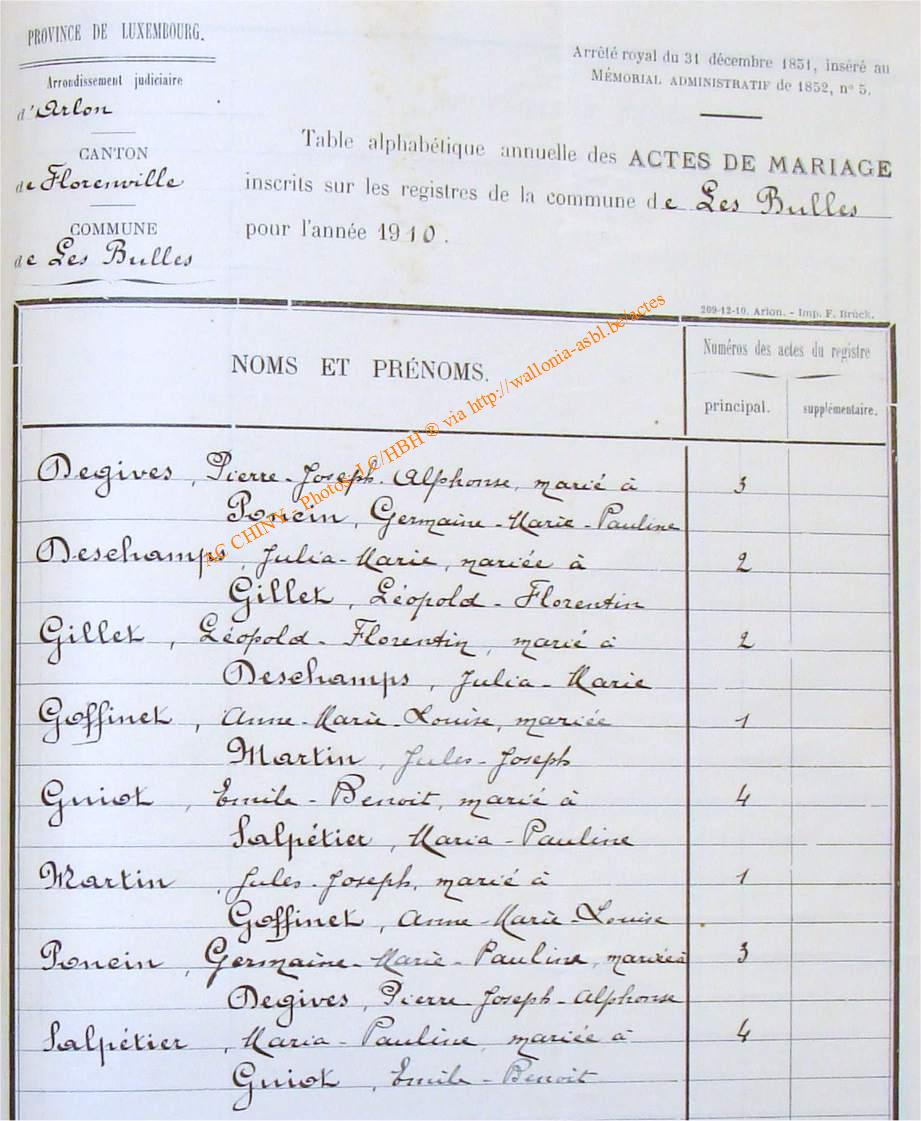 PROVINCE DE LUXEMBOURG.
Arrondissement judiciaire
d'Arlon
CANTON
de Florenville
COMMUNE
de Les Bulles
Arrêté royal du 31 décembre 1851, inséré au
MÉMORIAL ADMINISTRATIF de 1852, n° 5.
Table alphabétique annuelle des ACTES DE MARIAGE
inscrits sur les registres de la commune de Les Bulles
pour l'année 1910.
209-12-10. Arlon. - Imp. F. Brück.
NOMS ET PRÉNOMS.
Numéros des actes du registre
principal.
supplémentaire.
AG CHINY - Photos JLC/HBH ® via http://wallonia-asbl.be/actes
Degives, Pierre-Joseph-Alphonse, marié à 3
Poncin, Germaine-Marie-Pauline
Deschamps, Julia-Marie, mariée à 2
Gillet, Léopold-Florentin
Gillet, Léopold-Florentin, marié à 2
Deschamps, Julia-Marie
Goffinet, Anne-Marie Louise, mariée 1
Martin, Jules-Joseph
Guiot, Emile-Benoit, marié à 4
Salpétier, Maria-Pauline
Martin, Jules-Joseph, marié à 1
Goffinet, Anne-Marie-Louise
Poncin, Germaine-Marie-Pauline, mariée à 3
Degives, Pierre-Joseph-Alphonse
Salpétier, Maria-Pauline, mariée à 4
Guiot, Emile-Benoit